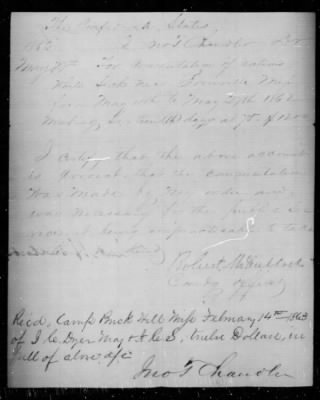 The Confederate States
1862 To Jno T Chandler Dr
May 27th For Commutation of rations
While Sick near Miss
from May 11th to May 27th 1862
Making days at 75c $12.00
I certify that the above account
is correct that the commutation
was made by my order and
was necessary for the public
it being impracticable to take
Robert McCulloch
Comdg
Recd, Camp Buck Hill Miss February 14th 1863
of J C Dyer Maj & A C S, twelve Dollars, in
full of above a/c
Jno T Chandler